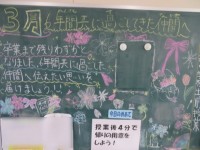 3月 6年間共に過ごしてきた仲間へ
卒業まで残りわずかと
なりました。6年間共に過ごした
仲間へ伝えたい思いを
届けましょう!!
授業後4分で
帰りの用意を
しよう!